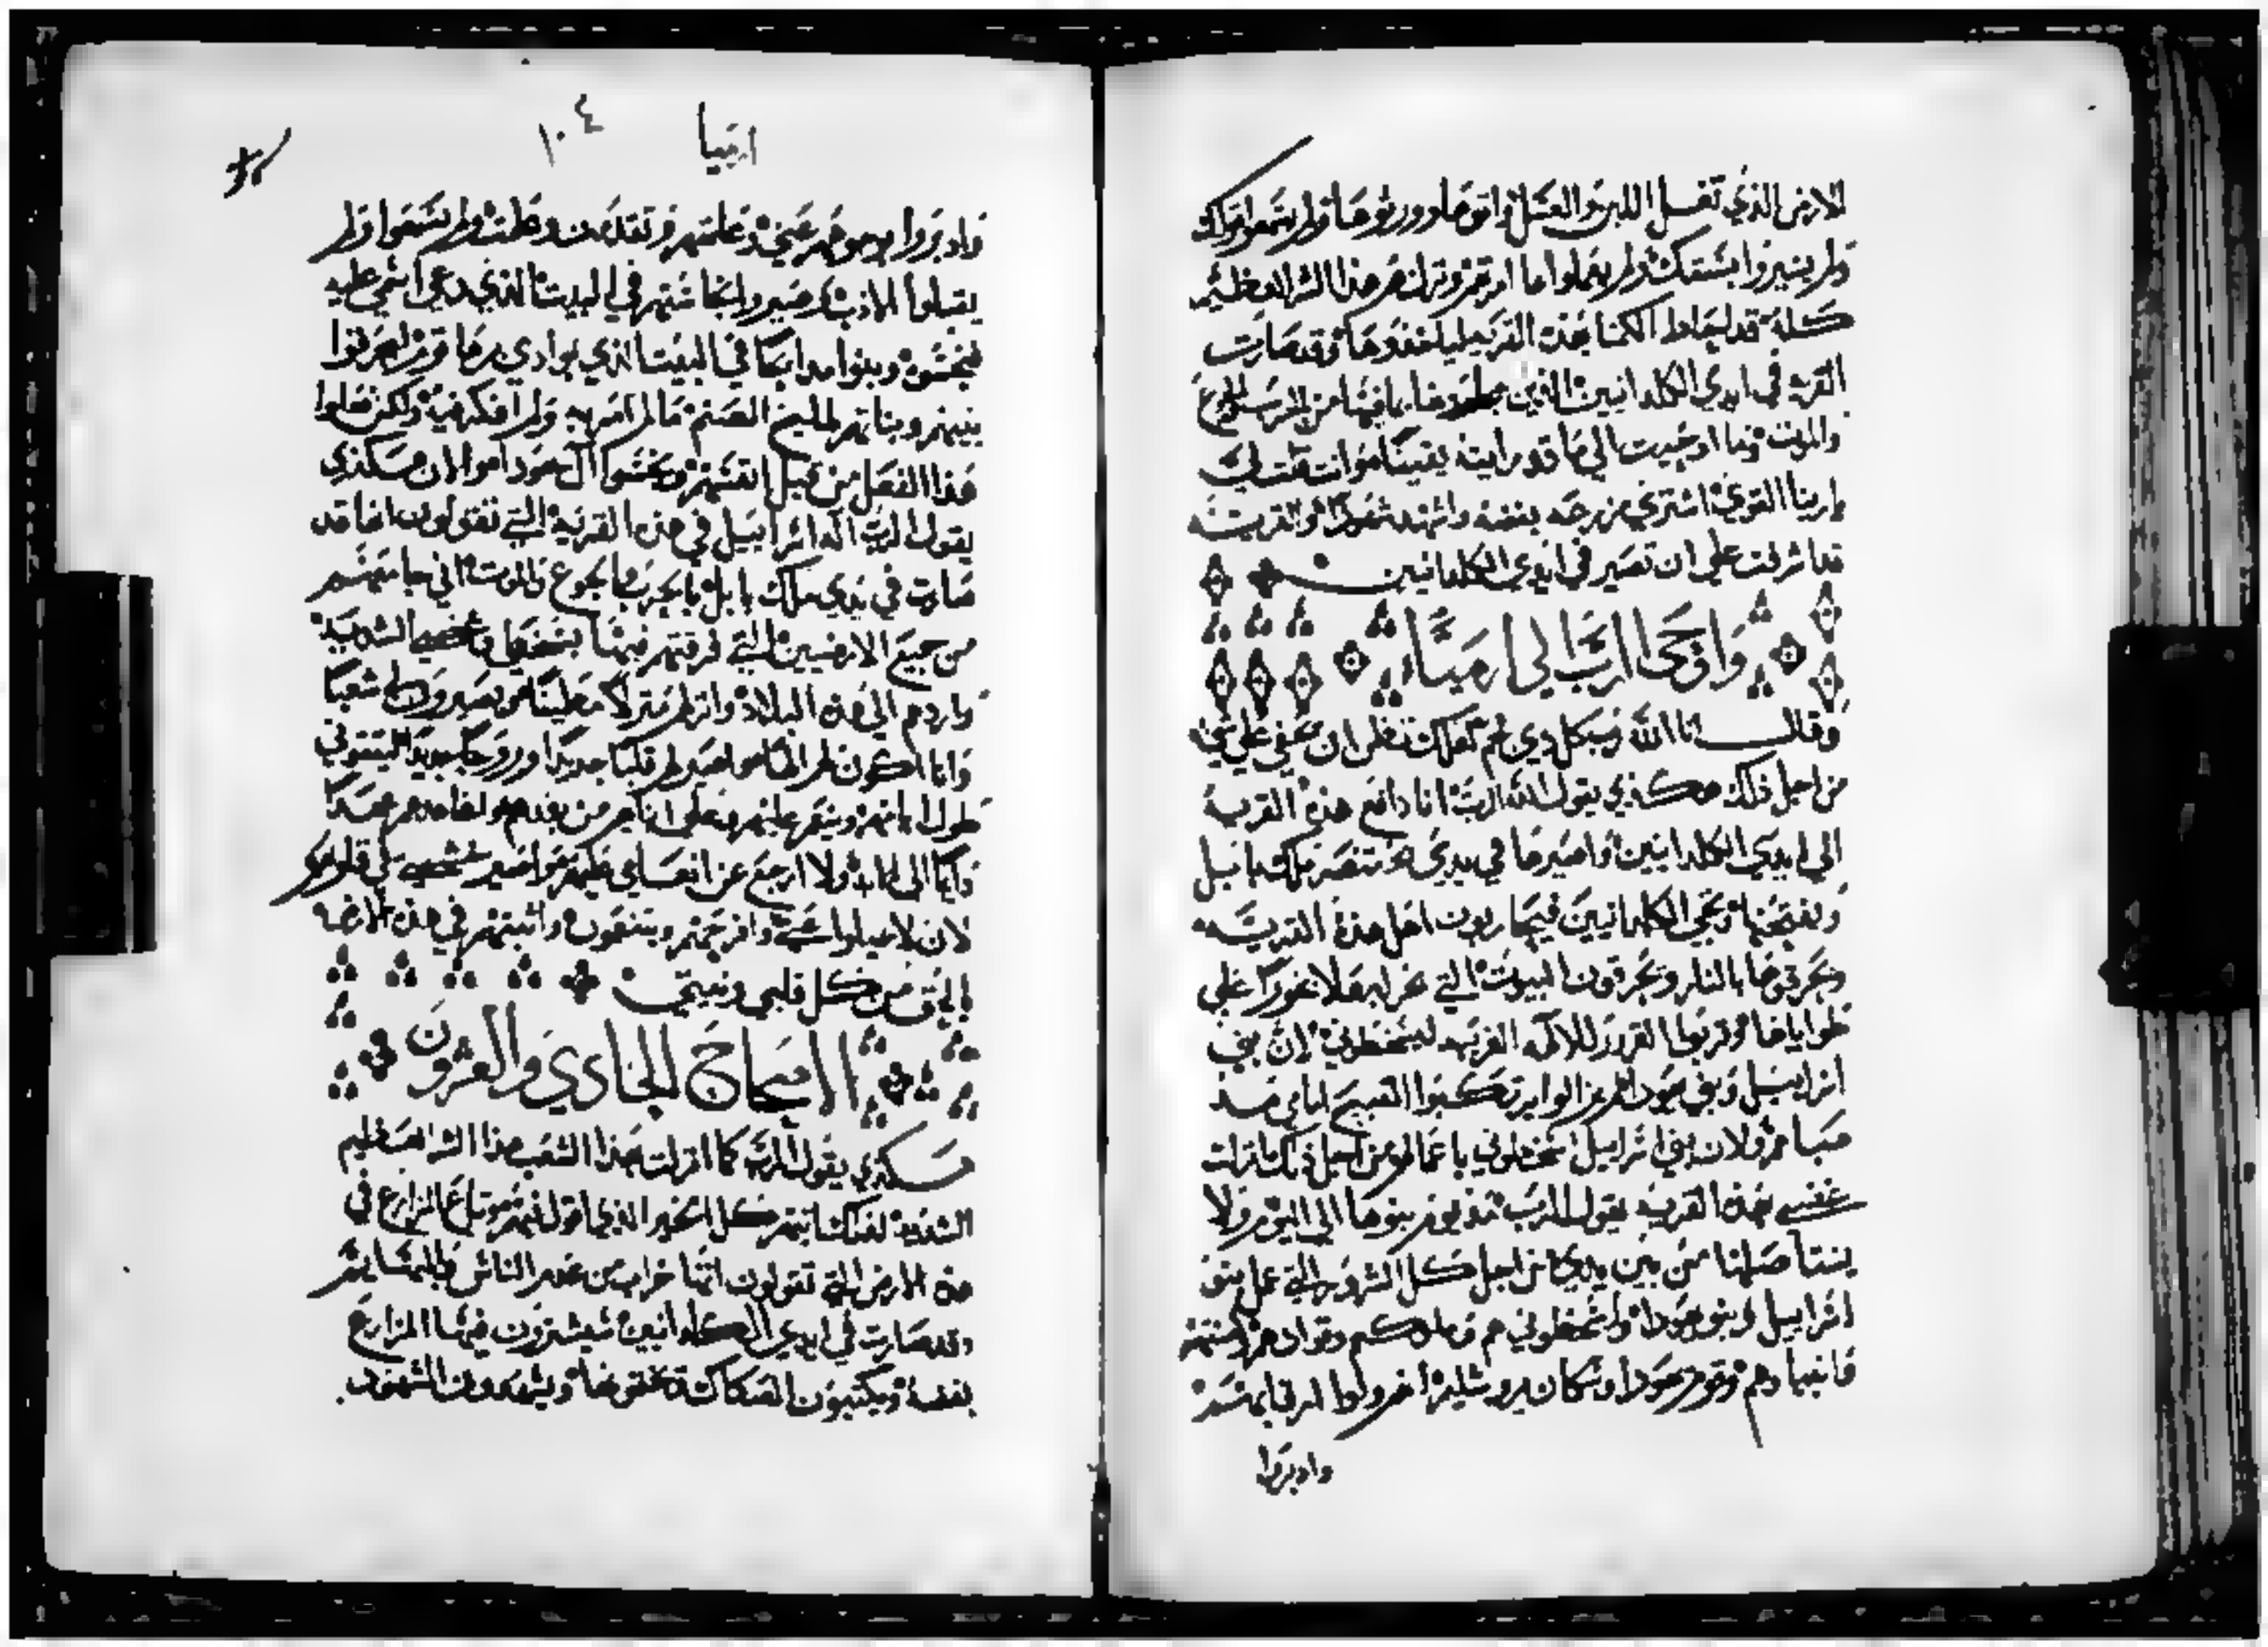 الارض الذي تغل اللبن والعسل فاتوها وورثوها ولم يسمعوا قولك
ولم يسيروا بسنتك ولم يعملوا ما امرتهم ونزل بهم هذا الشر العظيم
كله قد احاط الكمنا بهذه القرية لياخذوها وقد صارت
القرية في ايدي الكلدانيين الذين من الحرب والجوع
والموت وما اوحيت الي ها قد رايته يقينا وانت قلت لي
يا ربنا القوي اشتري مزرعه بفضه واشهد شهودا والقرية
قد اشرفت على ان تصير في ايدي الكلدانيين
واوحى الرب الي ارميا
وقال انا الله رب كل ذي لحم لعلك تظن ان يخفي علي شي
من اجل ذلك هكذي يقول الله الرب انا دافع هذه القرية
الى ايدي الكلدانيين واصيرها في يدي بختنصر ملك بابل
ويفتحها ويجي الكلدانيين فيحاربون اهل هذه القرية
ويحرقوها بالنار ويحرقون البيوت التي بخر اهلها بخورا على
طواياها وقربوا القرابين للالهه الغريبه ليسخطوني ان بني
اسراييل وبني يهودا لم يزالوا يرتكبوا القبيح امامي منذ
صباهم ولان بني اسراييل اسخطوني باعمالهم من اجل ذلك نزلت
غضبي بهذه القرية يقول الرب منذ يوم بنوها الى اليوم ولا
يستاصلها من بين يدي من اجل كل الشرور التي عمل بنو
اسراييل وبنو يهودا واسخطوني هم وملوكهم وقوادهم وكهنتهم
وانبياوهم وقوم يهودا وسكان يروشليم اذ ولوا
وادبروا
ارميا ١٠٤
وادبروا بوجوههم عني وعلمتهم وتقدمت وعلمت ولم يسمعوا ولم
يقبلوا الادب وصيروا انجاستهم في البيت الذي دعي اسمي عليه
لينجسوه وبنوا مدابحا في البيت الذي بوادي برهانوم ليحرقوا
بنيهم وبناتهم لملخ الصنم ما لم امر به ولم افكر فيه ولكن فعلوا
هذا الفعل من قبل انفسهم ونجسوا آل يهودا والان هكذي
يقول الرب اله اسراييل في هذه القرية التي تقولون انها قد
صارت في يدي ملك بابل بالحرب والجوع والموت اني جامعهم
من جميع الارضين التي فرقتهم فيها بسخطي وغضبي الشديد
واردهم الي هذه البلاد وانزلهم منزلا مطمينا ويصيرون لي شعبا
وانا اكون لهم الاها واصير لهم قلبا جديدا وروحا جديدا ليتقوني
طول ايامهم وينعم عليهم وعلى ابنايهم من بعدهم واعاهدهم عهدا
دايما الى الابد ولا ارجع عن انعامي عليهم واصير خشيتي في قلوبهم
لان لا يميلوا عني وافرحهم وينتفعون واثبتهم في هذه الارض
بالحق من كل قلبي ونيتي
الاصحاح الحادي والعشرون
هكذي يقول الرب كما انزلت بهذا الشعب هذا الشر العظيم
الشديد لهذا كذلك اتيتهم كل الخير الذي اقول لهم وتباع المزارع في
هذه الارض التي تقولون انها خراب من عدم الناس والبهايم
وقد صارت في ايدي الكلدانيين سيشترون فيها المزارع
بفضة ويكتبون الصكاك ويختموها ويشهدون الشهود